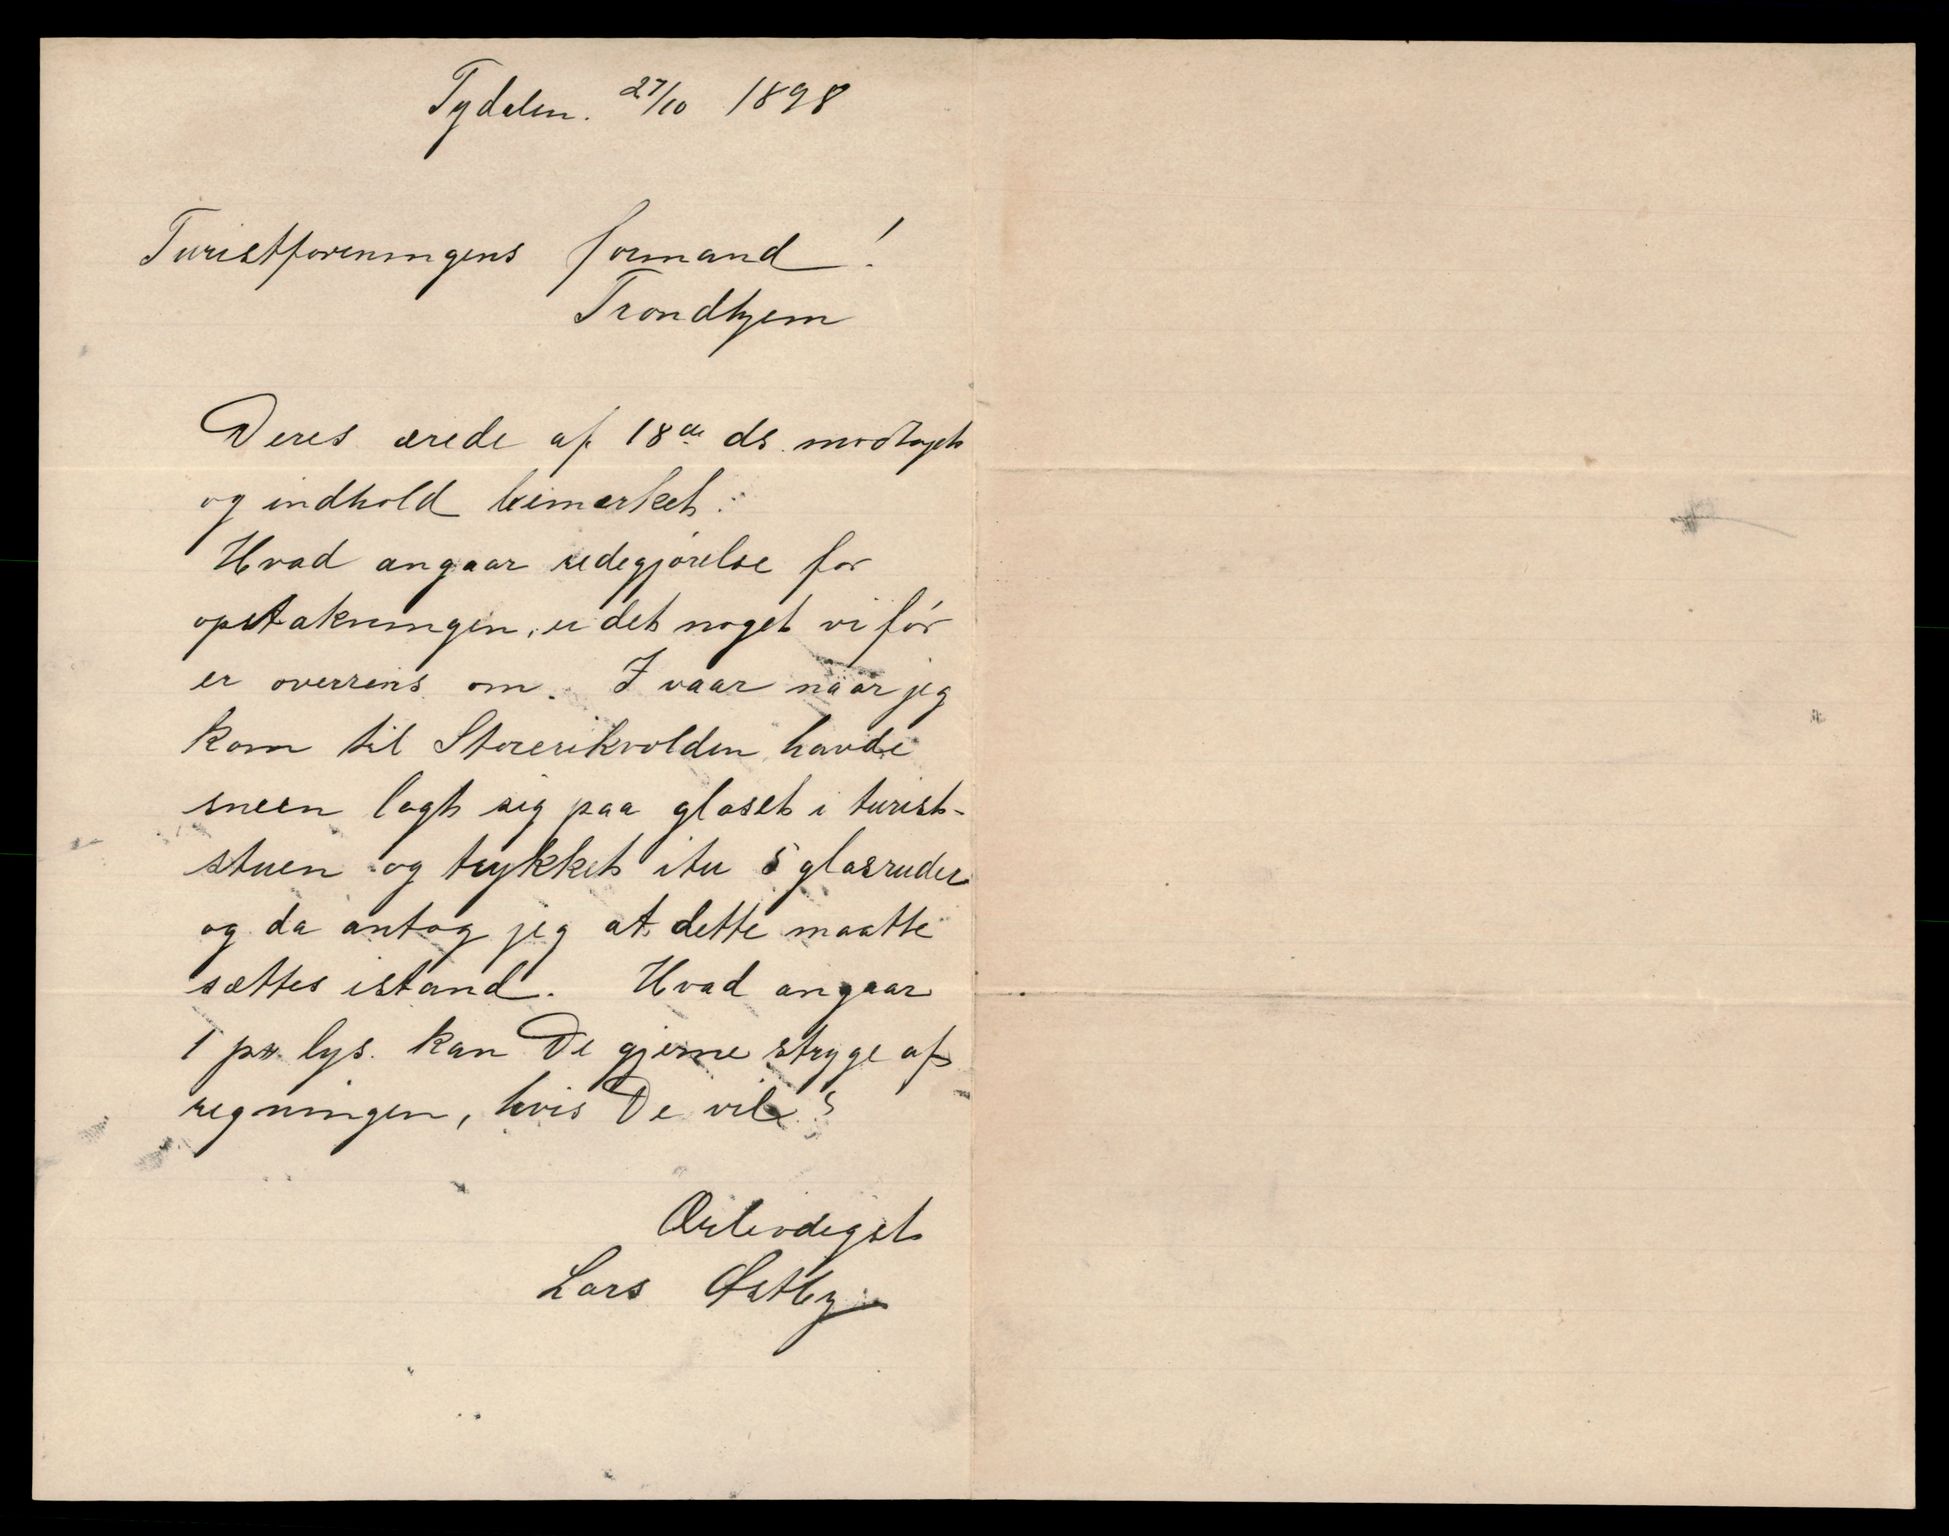 Tydalen. 27/10 1898
Turistforeningens formand!
Trondhjem
Deres ærede af 18de ds. modtaget
og indhold bemærket.
Hvad angaar redegjørelse for
opstakningen, er det noget vi før
er overrens om. I vaar naar jeg
kom til Storerikvolden havde
sneen lagt sig paa glaset i turist-
stuen og trykket itu 5 glasruder
og da antog jeg at dette maatte
sættes istand. Hvad angaar
1 pk lys. kan De gjerne stryge af
regningen, hvis De vil?
Ærbødigst
Lars Østby